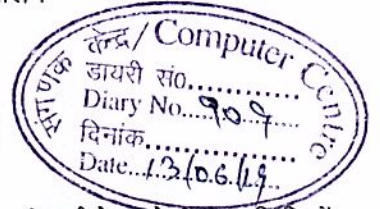 संगणक केन्द्र/Computer Centre
डायरी सं०............
Diary No...909....
दिनांक............
Date...13/06/19..